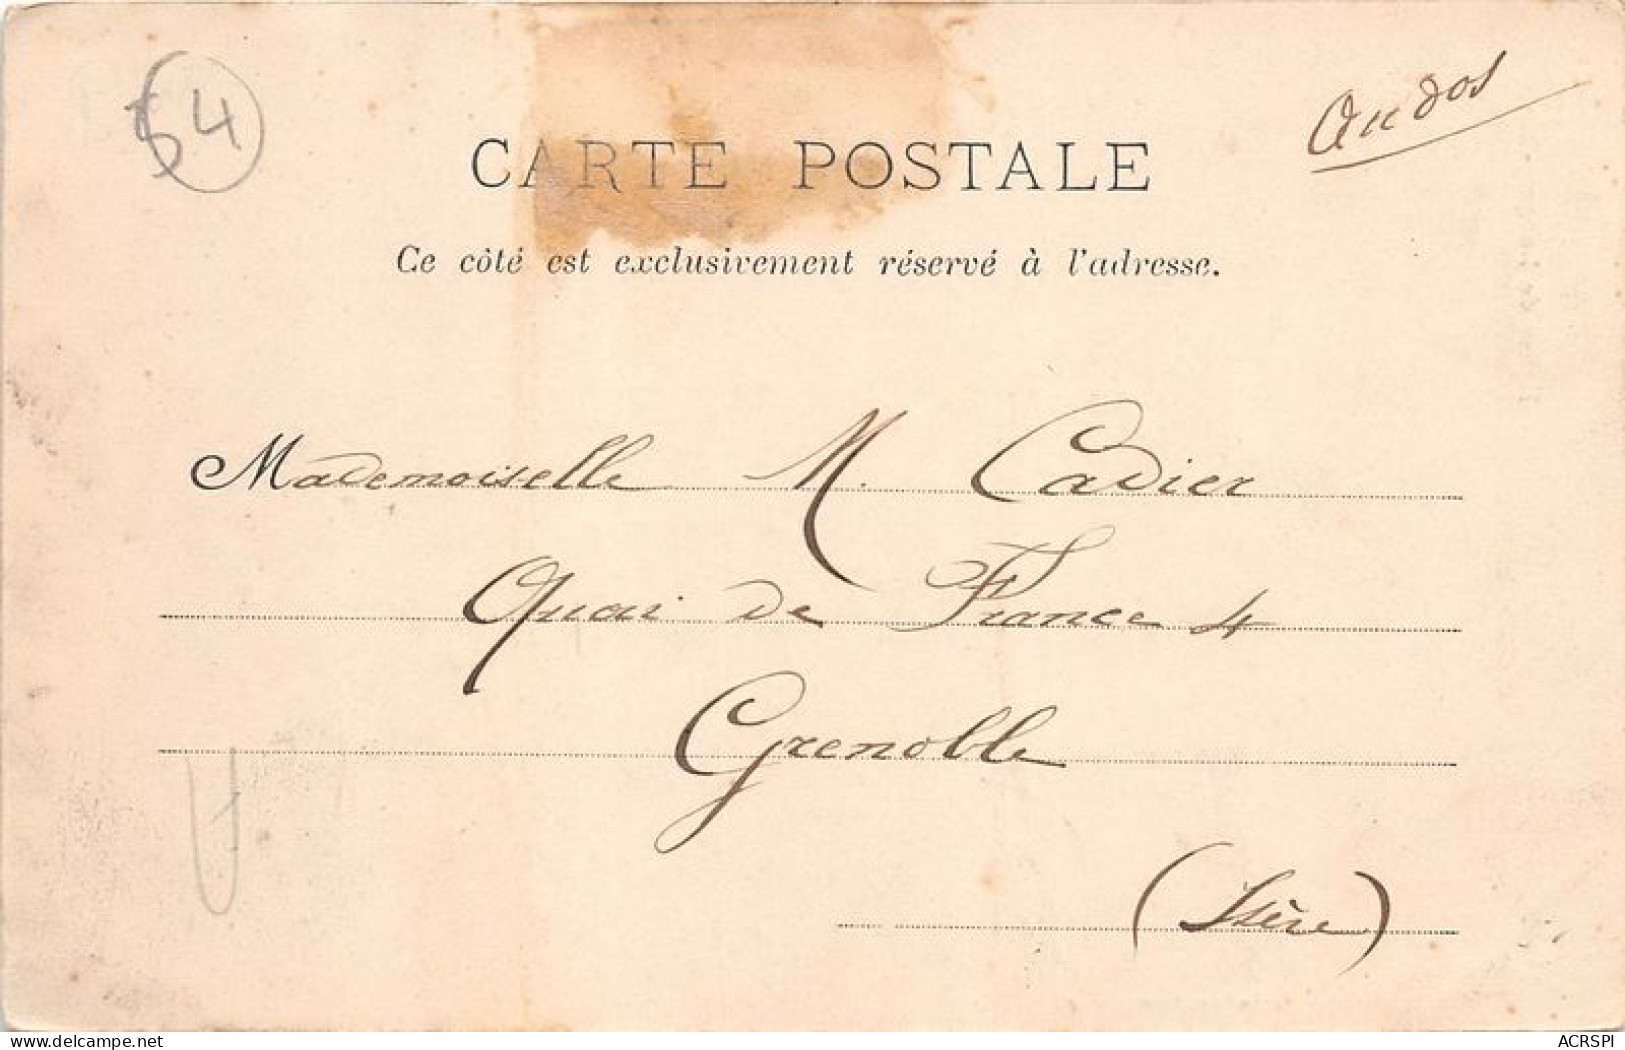 54
Au dos
CARTE POSTALE
Ce côté est exclusivement réservé à l'adresse.
Mademoiselle M. Cadier
Quai de France 4
Grenoble
(Isère)
www.delcampe.net
ACRSPI